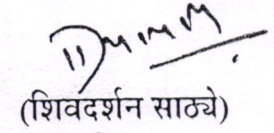 (शिवदर्शन साठ्ये)